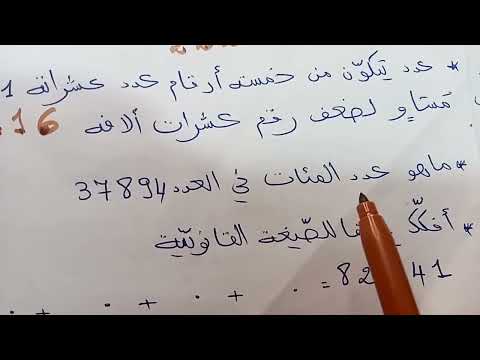 * عدد يتكوّن من خمسة أرقام عدد عشراته 1
مساوٍ لضعف رقم عشرات ألافه 16.
* ماهو عدد المئات في العدد 37894
* أفكّك للصّيغة القانونيّة
. + . + . = 41